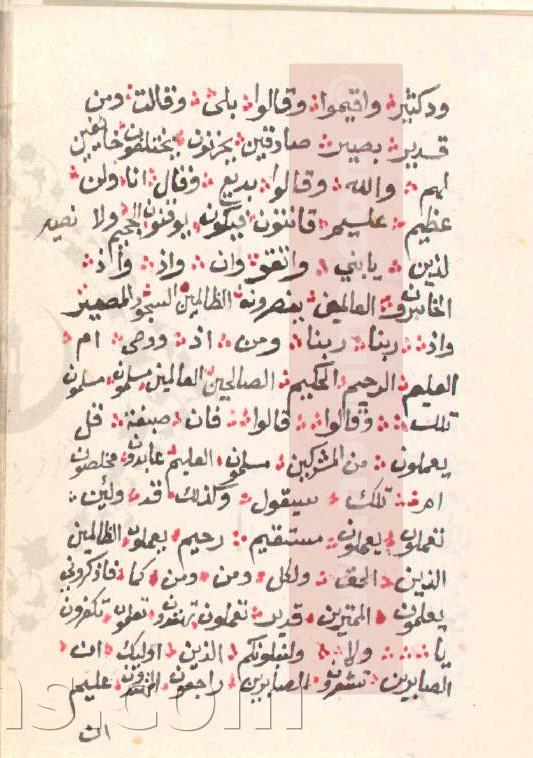 ودكثير واقيموا وقالوا بلى وقالت ومن
قدير بصير صادقين يحزنون يختلفون خائفين
لهم والله وقالوا بديع وقال انا ولن
عظيم عليم قانتون فيكون يوقنون الجحيم ولا نصير
لذين يابني واتقوا وان واذ واذ
الخاسرون العالمين ينصرون الظالمين السجود المصير
واذ ربنا ربنا ومن اذ ووصى ام
العليم الرحيم الحكيم الصالحين العالمين مسلمون مسلمون
تلك وقالوا قالوا فان صبغة قل
يعملون من المشركين مسلمون العليم عابدون مخلصون
ام تلك سيقول وكذلك قد ولئن
تعملون يعملون مستقيم رحيم يعملون الظالمين
الذين الحق ولكل ومن ومن كما فاذكروني
يعلمون الممترين قدير تعملون تهتدون تعلمون تكفرون
يا ولا ولنبلونكم الذين اولئك ان
الصابرين تشعرون الصابرين راجعون المهتدون عليم
ان
ns.com